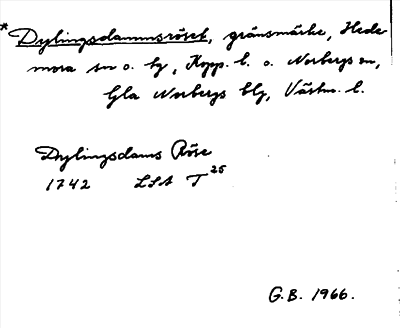 *Dylingsdammsröset, gränsmärke, Hede-
mora sn o. hg, Kopp. l. o. Norbergs sn,
Gla Norbergs blg, Västm. l.
Dylingsdams Röse
1742 LSA T 25
G.B. 1966.